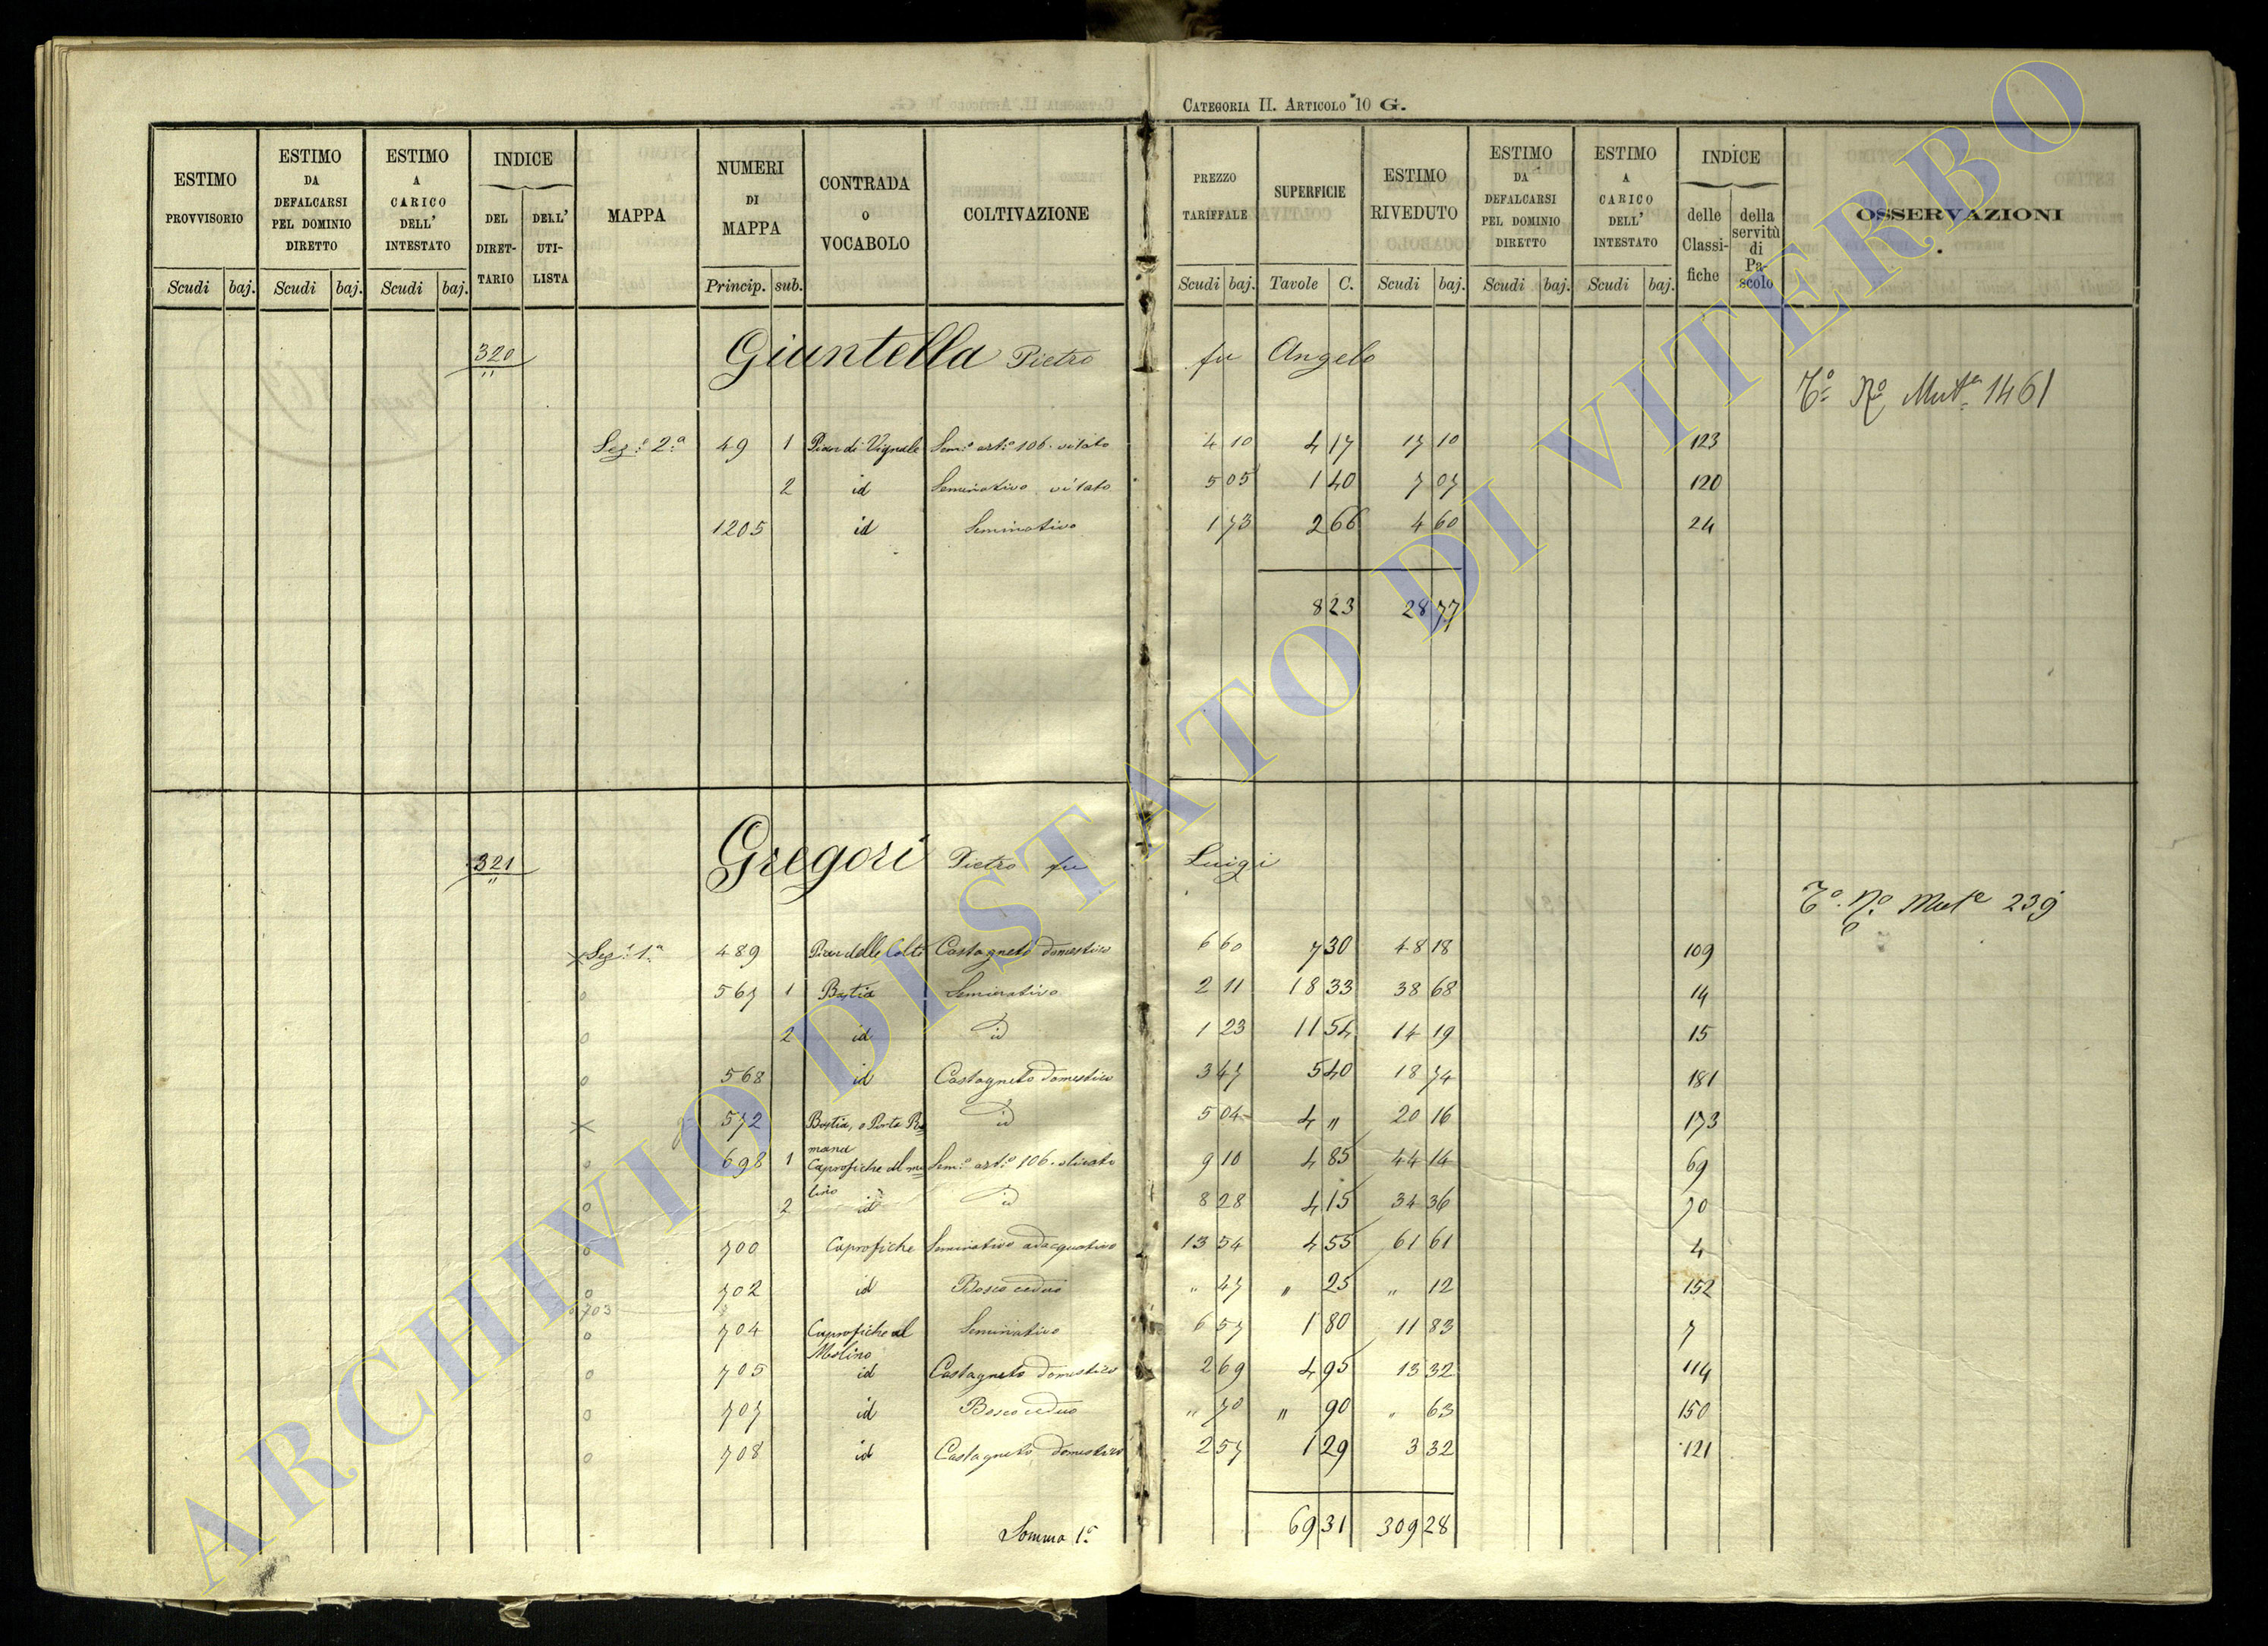 CATEGORIA II. ARTICOLO 10 G.
ESTIMO PROVVISORIO Scudi baj.
ESTIMO DA DEFALCARSI PEL DOMINIO DIRETTO Scudi baj.
ESTIMO A CARICO DELL' INTESTATO Scudi baj.
INDICE DEL DIRETTARIO DELL' UTILISTA
MAPPA
NUMERI DI MAPPA Princip. sub.
CONTRADA O VOCABOLO
COLTIVAZIONE
PREZZO TARIFFALE Scudi baj.
SUPERFICIE Tavole C.
ESTIMO RIVEDUTO Scudi baj.
ESTIMO DA DEFALCARSI PEL DOMINIO DIRETTO Scudi baj.
ESTIMO A CARICO DELL' INTESTATO Scudi baj.
INDICE delle Classifiche della servitù di Pascolo
OSSERVAZIONI
320 Giuntella Pietro fu Angelo
Tº Nº Mutª 1461
Sezª 2ª 49 1 Pian di Vignale Semº artº 106. vitato 4 10 4 17 17 10 123
2 id Seminativo vitato 5 05 1 40 7 07 120
1205 id Seminativo 1 73 2 66 4 60 24
8 23 28 77
321 Gregori Pietro fu Luigi
Tº Nº Mutª 239
Sezª 1ª 489 Pian delle Colte Castagneto domestico 6 60 7 30 48 18 109
567 1 Bastia Seminativo 2 11 18 33 38 68 14
2 id id 1 23 11 54 14 19 15
568 id Castagneto domestico 3 47 5 40 18 74 181
572 Bastia, o Porta Romana id 5 04 4 " 20 16 173
698 1 Caprofiche al molino Semº artº 106. olivato 9 10 4 85 44 14 69
2 id id 8 28 4 15 34 36 70
700 Caprofiche Seminativo adacquativo 13 54 4 55 61 61 4
702 id Bosco ceduo " 47 " 25 " 12 152
703
704 Caprofiche al Molino Seminativo 6 57 1 80 11 83 7
705 id Castagneto domestico 2 69 4 95 13 32 114
707 id Bosco ceduo " 70 " 90 " 63 150
708 id Castagneto domestico 2 57 1 29 3 32 121
Somma 1ª 69 31 309 28
ARCHIVIO DI STATO DI VITERBO